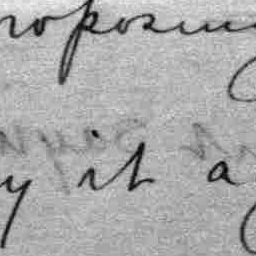 roposin
y it a